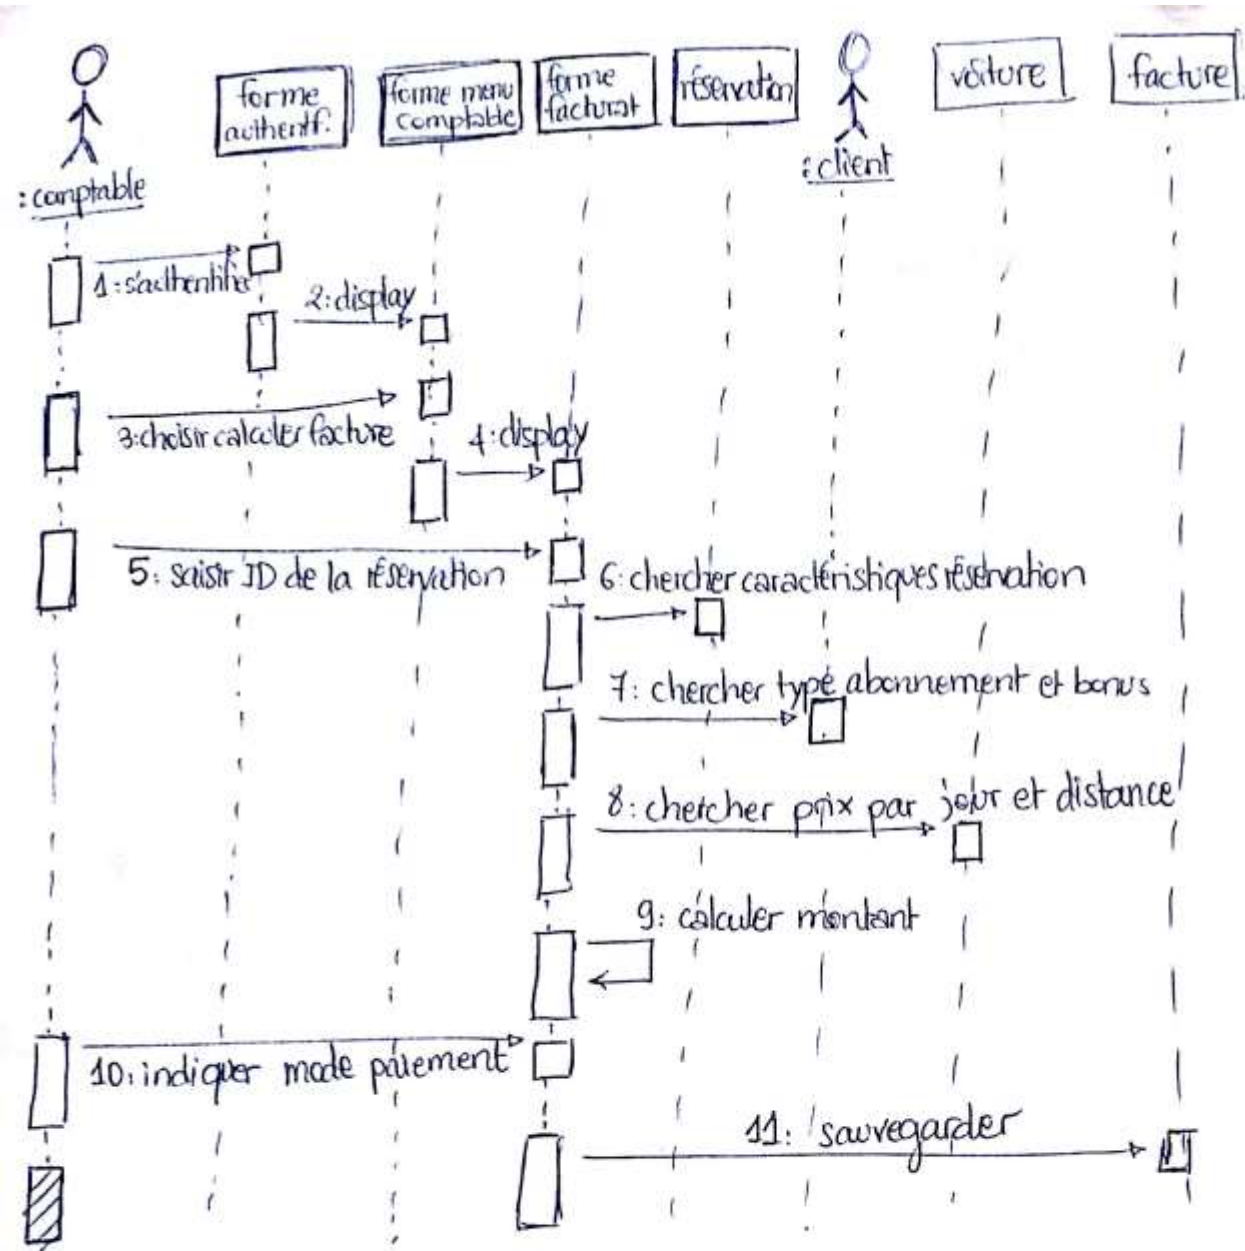 forme
authentf.
forme menu
comptable
forme
facturat
réservation
voiture
facture
:comptable
:client
1:s'authentifier
2:display
3:choisir calculer facture
4:display
5: saisir ID de la réservation
6:chercher caractéristiques réservation
7: chercher type abonnement et bonus
8: chercher prix par jour et distance
9: calculer montant
10:indiquer mode paiement
11: sauvegarder